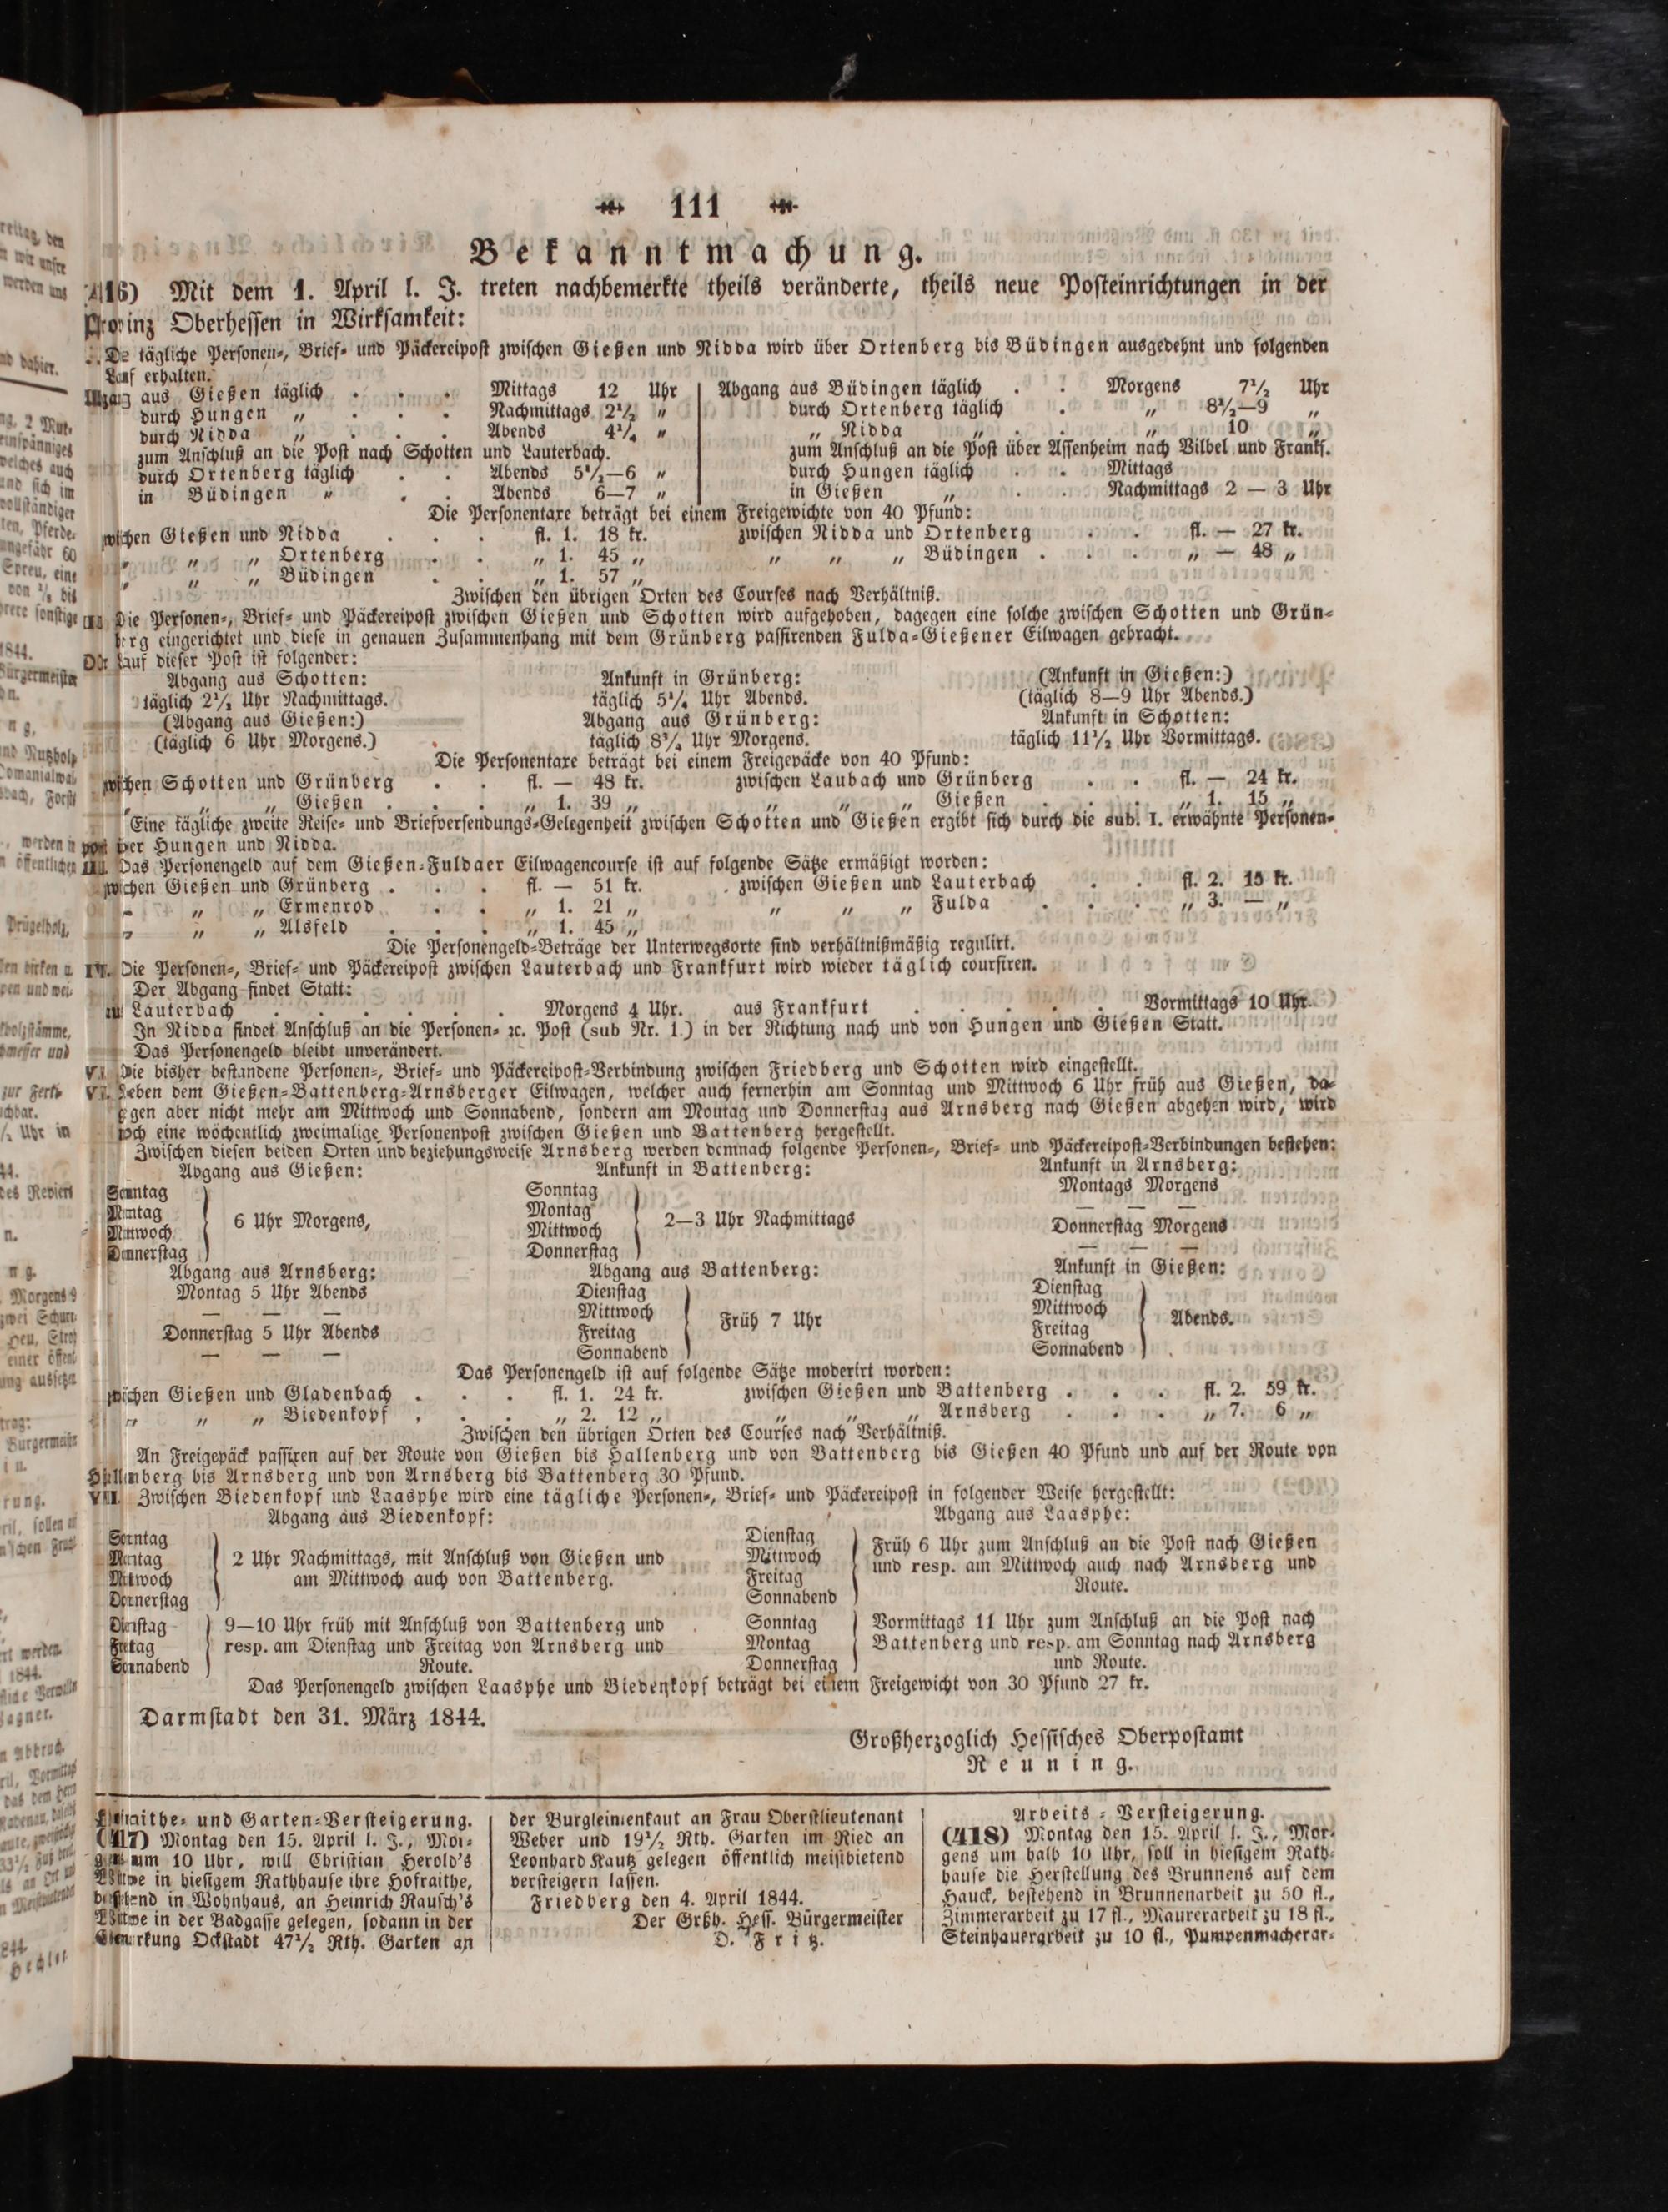 111
Bekanntmachung.
(416) Mit dem 1. April l. J. treten nachbemerkte theils veränderte, theils neue Posteinrichtungen in der
Provinz Oberhessen in Wirksamkeit:
tägliche Personen-, Brief- und Päckereipost zwischen Gießen und Nidda wird über Ortenberg bis Büdingen ausgedehnt und folgenden
Lauf erhalten.
Abgang aus Gießen täglich . . . Mittags 12 Uhr
durch Hungen „ . . . Nachmittags 2½ „
durch Nidda „ . . . Abends 4¼ „
zum Anschluß an die Post nach Schotten und Lauterbach.
durch Ortenberg täglich . . Abends 5½—6 „
in Büdingen „ . . Abends 6—7 „
Abgang aus Büdingen täglich . . Morgens 7½ Uhr
durch Ortenberg täglich . „ 8½—9 „
„ Nidda „ . . „ 10 „
zum Anschluß an die Post über Assenheim nach Vilbel und Frankf.
durch Hungen täglich . . Mittags
in Gießen „ . . Nachmittags 2 — 3 Uhr
Die Personentaxe beträgt bei einem Freigewichte von 40 Pfund:
zwischen Gießen und Nidda . . . fl. 1. 18 kr. zwischen Nidda und Ortenberg . . fl. — 27 kr.
„ „ „ Ortenberg . . „ 1. 45 „ „ „ „ Büdingen . . . „ — 48 „
„ „ „ Büdingen . . „ 1. 57 „
Zwischen den übrigen Orten des Courses nach Verhältniß.
II. Die Personen-, Brief- und Päckereipost zwischen Gießen und Schotten wird aufgehoben, dagegen eine solche zwischen Schotten und Grün-
berg eingerichtet und diese in genauen Zusammenhang mit dem Grünberg passirenden Fulda-Gießener Eilwagen gebracht.
Der Lauf dieser Post ist folgender:
Abgang aus Schotten: Ankunft in Grünberg: (Ankunft in Gießen:)
täglich 2½ Uhr Nachmittags. täglich 5¼ Uhr Abends. (täglich 8—9 Uhr Abends.)
(Abgang aus Gießen:) Abgang aus Grünberg: Ankunft in Schotten:
(täglich 6 Uhr Morgens.) täglich 8¾ Uhr Morgens. täglich 11½ Uhr Vormittags.
Die Personentaxe beträgt bei einem Freigepäcke von 40 Pfund:
zwischen Schotten und Grünberg . . fl. — 48 kr. zwischen Laubach und Grünberg . . fl. — 24 kr.
„ „ „ Gießen . . . „ 1. 39 „ „ „ „ Gießen . . . „ 1. 15 „
Eine tägliche zweite Reise- und Briefversendungs-Gelegenheit zwischen Schotten und Gießen ergibt sich durch die sub. I. erwähnte Personen-
post per Hungen und Nidda.
III. Das Personengeld auf dem Gießen-Fuldaer Eilwagencourse ist auf folgende Sätze ermäßigt worden:
zwischen Gießen und Grünberg . . . fl. — 51 kr. zwischen Gießen und Lauterbach . . fl. 2. 15 kr.
„ „ „ Ermenrod . . „ 1. 21 „ „ „ „ Fulda . . . „ 3. — „
„ „ „ Alsfeld . . . „ 1. 45 „
Die Personengeld-Beträge der Unterwegsorte sind verhältnißmäßig regulirt.
IV. Die Personen-, Brief- und Päckereipost zwischen Lauterbach und Frankfurt wird wieder täglich coursiren.
Der Abgang findet Statt:
zu Lauterbach . . . . . . . Morgens 4 Uhr. aus Frankfurt . . . . . Vormittags 10 Uhr.
In Nidda findet Anschluß an die Personen- ꝛc. Post (sub Nr. 1.) in der Richtung nach und von Hungen und Gießen Statt.
Das Personengeld bleibt unverändert.
V. Die bisher bestandene Personen-, Brief- und Päckereipost-Verbindung zwischen Friedberg und Schotten wird eingestellt.
VI. Neben dem Gießen-Battenberg-Arnsberger Eilwagen, welcher auch fernerhin am Sonntag und Mittwoch 6 Uhr früh aus Gießen, da-
gegen aber nicht mehr am Mittwoch und Sonnabend, sondern am Montag und Donnerstag aus Arnsberg nach Gießen abgehen wird, wird
noch eine wöchentlich zweimalige Personenpost zwischen Gießen und Battenberg hergestellt.
Zwischen diesen beiden Orten und beziehungsweise Arnsberg werden demnach folgende Personen-, Brief- und Päckereipost-Verbindungen bestehen:
Abgang aus Gießen: Ankunft in Battenberg: Ankunft in Arnsberg:
Sonntag Sonntag Montags Morgens
Montag Montag — — —
6 Uhr Morgens, 2—3 Uhr Nachmittags
Mittwoch Mittwoch Donnerstag Morgens
Donnerstag Donnerstag — — —
Abgang aus Arnsberg: Abgang aus Battenberg: Ankunft in Gießen:
Montag 5 Uhr Abends Dienstag Dienstag
— — — Mittwoch Mittwoch
Früh 7 Uhr Abends.
Donnerstag 5 Uhr Abends Freitag Freitag
— — — Sonnabend Sonnabend
Das Personengeld ist auf folgende Sätze moderirt worden:
zwischen Gießen und Gladenbach . . . fl. 1. 24 kr. zwischen Gießen und Battenberg . . . fl. 2. 59 kr.
„ „ „ Biedenkopf . . . „ 2. 12 „ „ „ „ Arnsberg . . . „ 7. 6 „
Zwischen den übrigen Orten des Courses nach Verhältniß.
An Freigepäck passiren auf der Route von Gießen bis Hallenberg und von Battenberg bis Gießen 40 Pfund und auf der Route von
Hallenberg bis Arnsberg und von Arnsberg bis Battenberg 30 Pfund.
VII. Zwischen Biedenkopf und Laasphe wird eine tägliche Personen-, Brief- und Päckereipost in folgender Weise hergestellt:
Abgang aus Biedenkopf: Abgang aus Laasphe:
Sonntag
Montag
Mittwoch
Donnerstag
2 Uhr Nachmittags, mit Anschluß von Gießen und
am Mittwoch auch von Battenberg.
Dienstag
Mittwoch
Freitag
Sonnabend
Früh 6 Uhr zum Anschluß an die Post nach Gießen
und resp. am Mittwoch auch nach Arnsberg und
Route.
Dienstag
Freitag
Sonnabend
9—10 Uhr früh mit Anschluß von Battenberg und
resp. am Dienstag und Freitag von Arnsberg und
Route.
Sonntag
Montag
Donnerstag
Vormittags 11 Uhr zum Anschluß an die Post nach
Battenberg und resp. am Sonntag nach Arnsberg
und Route.
Das Personengeld zwischen Laasphe und Biedenkopf beträgt bei einem Freigewicht von 30 Pfund 27 kr.
Darmstadt den 31. März 1844.
Großherzoglich Hessisches Oberpostamt
Reuning.
Hofraithe- und Garten-Versteigerung.
(417) Montag den 15. April l. J., Mor-
gens um 10 Uhr, will Christian Herold's
Wittwe in hiesigem Rathhause ihre Hofraithe,
bestehend in Wohnhaus, an Heinrich Rausch's
Wittwe in der Badgasse gelegen, sodann in der
Gemarkung Ockstadt 47½ Rth. Garten an
der Burgleimenkaut an Frau Oberstlieutenant
Weber und 19½ Rth. Garten im Ried an
Leonhard Kautz gelegen öffentlich meistbietend
versteigern lassen.
Friedberg den 4. April 1844.
Der Grßh. Hess. Bürgermeister
D. Fritz.
Arbeits-Versteigerung.
(418) Montag den 15. April l. J., Mor-
gens um halb 10 Uhr, soll in hiesigem Rath-
hause die Herstellung des Brunnens auf dem
Hauck, bestehend in Brunnenarbeit zu 50 fl.,
Zimmerarbeit zu 17 fl., Maurerarbeit zu 18 fl.,
Steinhauerarbeit zu 10 fl., Pumpenmacherar-